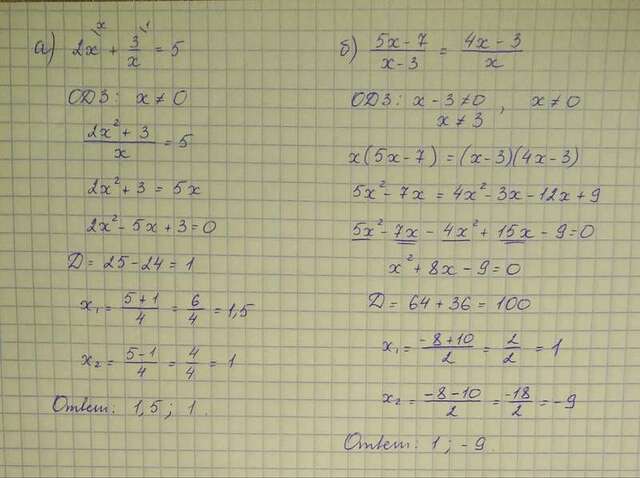 а) 2x^{\x} + \frac{3}{x}^{\1} = 5
ОДЗ: x ≠ 0
\frac{2x² + 3}{x} = 5
2x² + 3 = 5x
2x² - 5x + 3 = 0
D = 25 - 24 = 1
x₁ = \frac{5+1}{4} = \frac{6}{4} = 1,5
x₂ = \frac{5-1}{4} = \frac{4}{4} = 1
Ответ: 1,5; 1.
б) \frac{5x-7}{x-3} = \frac{4x-3}{x}
ОДЗ: x - 3 ≠ 0, x ≠ 0
x ≠ 3
x(5x-7) = (x-3)(4x-3)
5x² - 7x = 4x² - 3x - 12x + 9
5x² - 7x - 4x² + 15x - 9 = 0
x² + 8x - 9 = 0
D = 64 + 36 = 100
x₁ = \frac{-8+10}{2} = \frac{2}{2} = 1
x₂ = \frac{-8-10}{2} = \frac{-18}{2} = -9
Ответ: 1; -9.